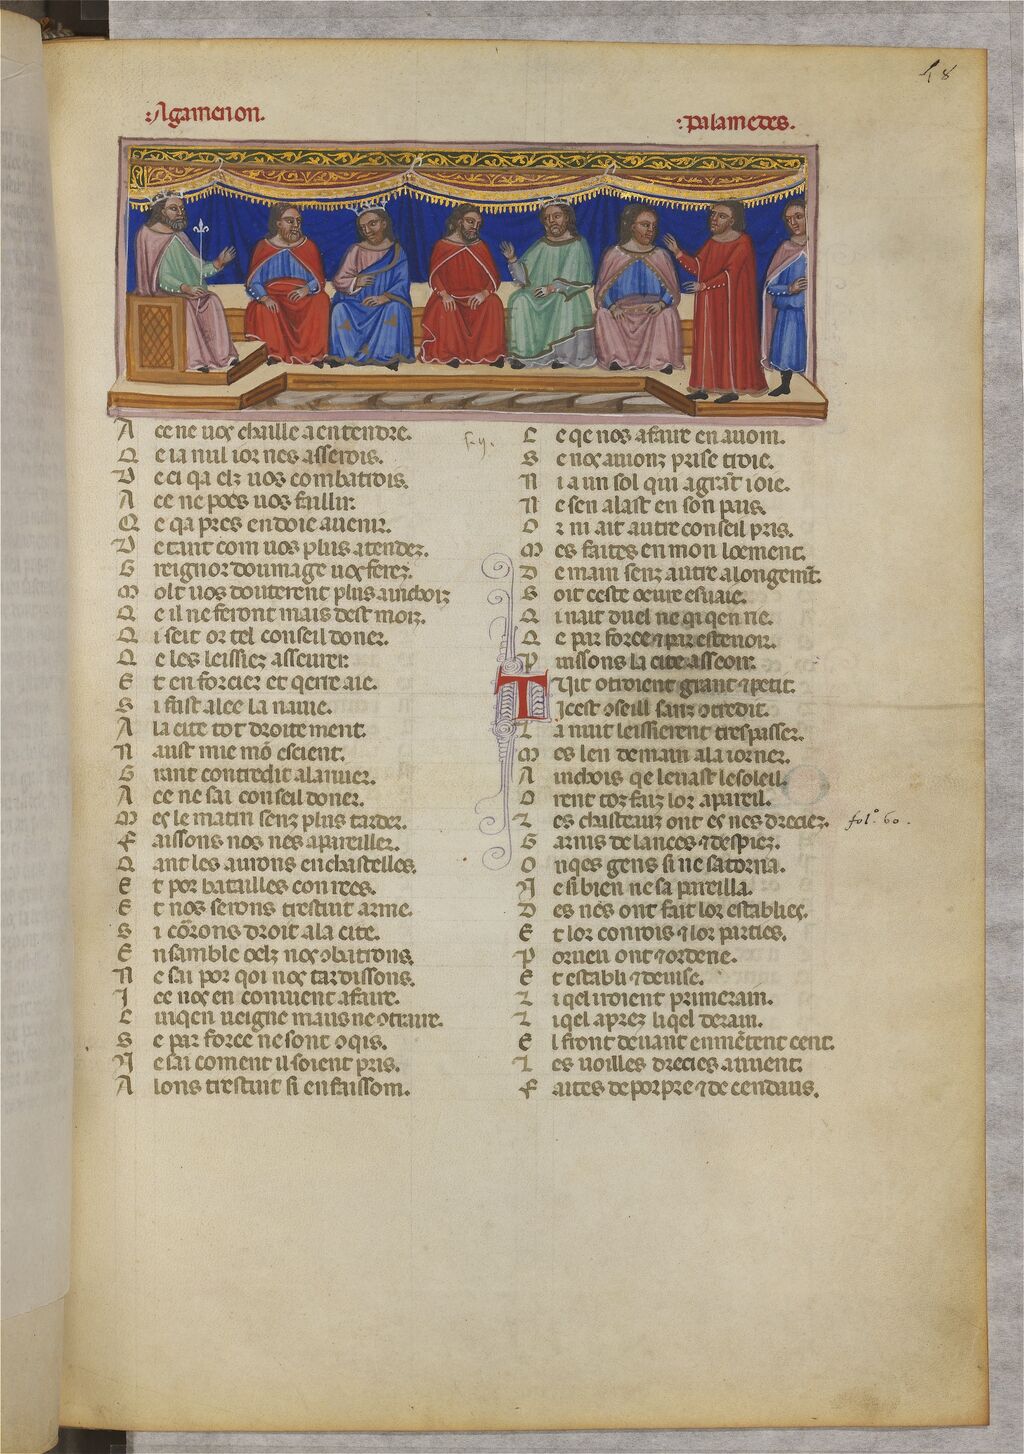 48
:Agamenon.
:Palametes.
A ce ne uoz chaille a entendre.
Q e ia nul ior nes asserois.
D e ci qa elz uos combatrois.
A ce ne poes uos faillir.
Q e qa pres en doie auenir.
D e tant com uos plus atendez.
G reignor doumage uoz ferez.
M olt uos douterent plus aincbois
Q e il ne feront mais dest mois.
Q i seit or tel conseil doner.
Q e les leissiez asseurer.
E t enforcier et qerre aie.
S i fust alee la nauie.
A la cite tot droitement.
N aust mie mo escient.
G rant contredit al ariuer.
A ce ne sai conseil doner.
M es le matin senz plus tarder.
F aissons nos nes apareiller.
Q ant les aurons enchastelles.
E t por batailles conrees.
E t nos serons trestuit arme.
S i corons droit a la cite.
E nsamble oelz nos obatrons.
N e sai por qoi noz tardissons.
J ce noz en conuient a faire.
C uiqen ueigne maus ne otraire.
S e par force ne sont oqis.
N e sai coment il soient pris.
A lons trestuit si en faissom.
C e qe nos a faut en auom.
S e noz auions prise troie.
N i a un sol qui agrat ioie.
N e sen alast en son pais.
O r ni ait autre conseil pris.
M es faites en mon loement.
D emain senz autre alongemt.
S oit ceste oeure esuaie.
Q i nait duel ne qi qen rie.
Q e par force ⁊ par estenoir.
P uissons la cite asseoir.
T Uit otroient grant ⁊ petit.
Icest oseill sanz otredit.
L a nuit leissierent trespasser.
M es len demain a la iornee.
A inchois qe leuast le soleil.
O rent toz faiz lor apareil.
L es chasteauz ont es nes dreciez.
fol.º 60.
G arnis de lances ⁊ despiez.
O nqes gens si ne satorna.
N e si bien ne sa pareilla.
D es nes ont fait lor establies.
E t lor conrois ⁊ lor parties.
P orueu ont ⁊ ordene.
E t establi ⁊ deuise.
L i qel iroient primerain.
L i qel aprez li qel derain.
E l front deuant en metent cent.
L es uoilles drecies au uent.
F aites de porpre ⁊ de cendaus.